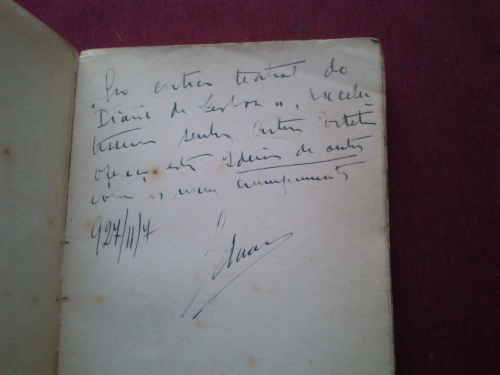 "Ao critico teatral do
Diario de Lisboa", Excelen
tissimo senhor Artur
ofereço este Ideias de outros
com os meus cumprimentos
927/11/7